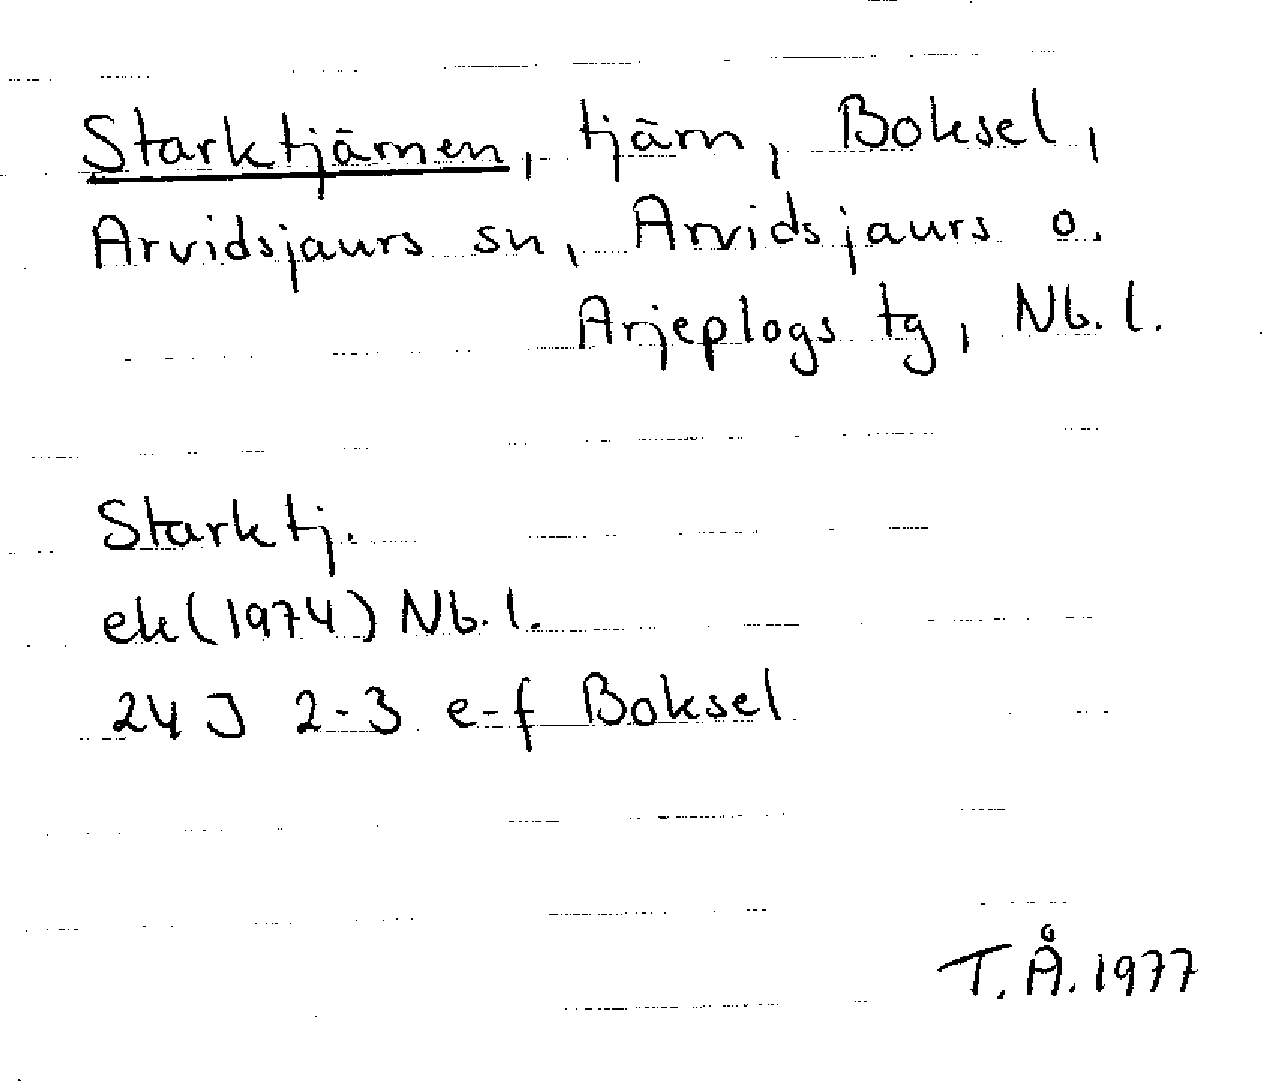 Starktjärnen, tjärn, Boksel,
Arvidsjaurs sn, Arvidsjaurs o.
Arjeplogs tg, Nb.l.
Starktj.
ek(1974) Nb.l.
24J 2-3 e-f Boksel
T.Å.1977